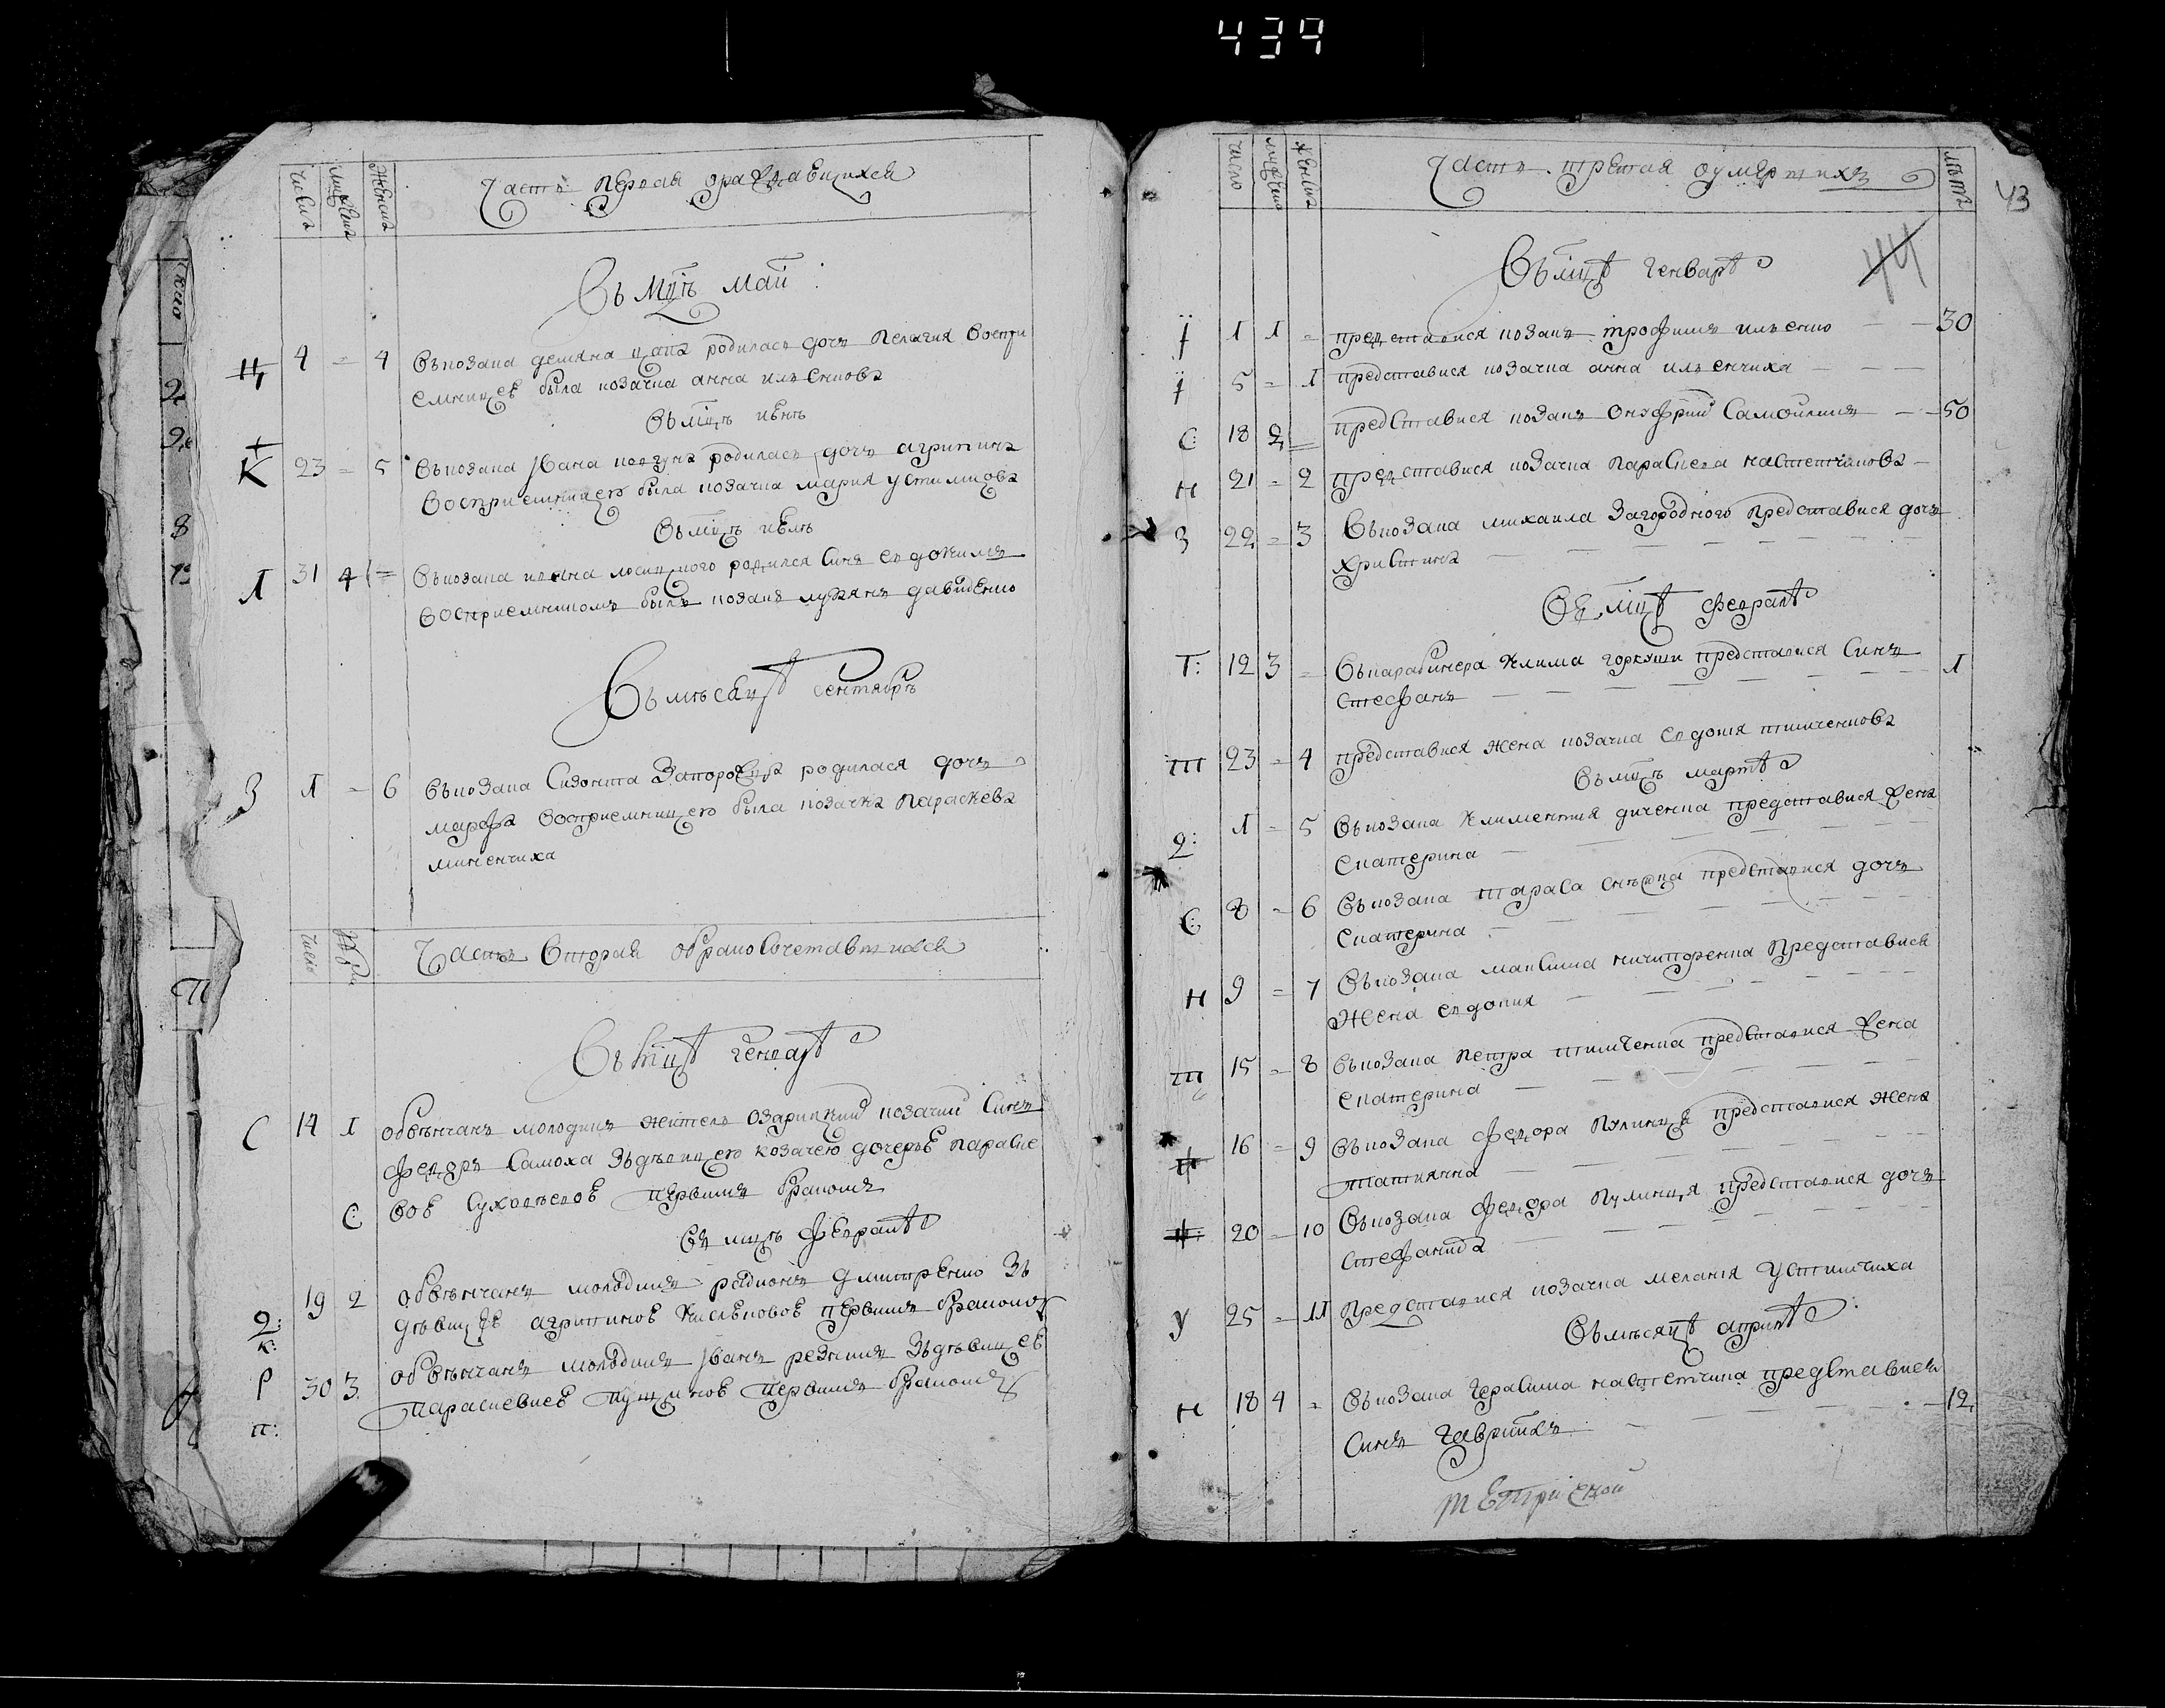 439
числа мужеска женска Часть первая ораждавшихся
Въ мцѣ маїи
Ц 4 = 4 Въ козака демяна цапа родиласъ дочъ Пелагия воспри
емницею была козачка анна илъенкова
Въ мцѣ июнѣ
К 23 = 5 Въ козака Iвана ковзуна родиласъ дочъ агрипина
восприемницею была козачка мария устимцова
Въ мцѣ июлѣ
Л 31 4 = Въ козака ивана лосицкого родился синъ евдокимъ
восприемникомъ былъ козакъ лукянъ давиденко
Въ мѣсяцѣ сентябрѣ
З 1 = 6 Въ козака Сизонта Запорожца родилася дочъ
марфа восприемницею была козачка Параскева
миненчиха
число Часть вторая обракосочетавшихся
Въ мцѣ генварѣ
С 14 1 обвѣнчанъ молодикъ житель озарицкий козачий синъ
федоръ Самоха зъдѣвицею козачею дочерью Параске
С вою Суховѣевою первимъ бракомъ
Въ мцѣ февралѣ
19 2 обвѣнчанъ молодикъ радионъ дмитренко зъ
Д: к: дѣвицею агрипиною Киселювою первимъ бракомъ
Р 30 3 обвѣнчанъ молодикъ Iванъ резникъ зъдѣвицею
п: параскевиею пущиною первимъ бракомъ
43
число мужеска женска Часть третая оумершихъ лѣта
44
Въ мцѣ генварѣ
Ї 1 1 = представися козакъ трофимъ илъенко 30
Ї 5 = 1 представися козачка анна илъенчиха
С: 18 2 = представися козакъ онуфрий Самойликъ 50
Н 21 = 2 представися козачка Параскева настетчинова
З 22 = 3 Въ козака михаила Загородного представися дочъ
христина
Въ мцѣ февралѣ
Г: 12 3 = Въ карабинера Клима горкуши представися Синъ 1
стефанъ
Т 23 = 4 представися жена козачка евдокия тимченкова
Въ мцѣ мартѣ
Д: 1 = 5 Въ козака Климентия диченка представися жена
екатерина
С 8 = 6 Въ козака тараса снѣжка представися дочъ
екатерина
Н 9 = 7 Въ козака максима ничипоренка представися
жена евдокия
Т 15 = 8 Въ козака петра тимченка представися жена
екатерина
16 = 9 Въ козака федора Кулиница представися жена
татиянна
20 = 10 Въ козака федора Кулиниця представися дочъ
стефанида
У 25 = 11 представися козачка мелания Устимчиха
Въ мѣсяцѣ априлѣ
Н 18 4 = Въ козака герасима настетчина представися 12
синъ гавриилъ